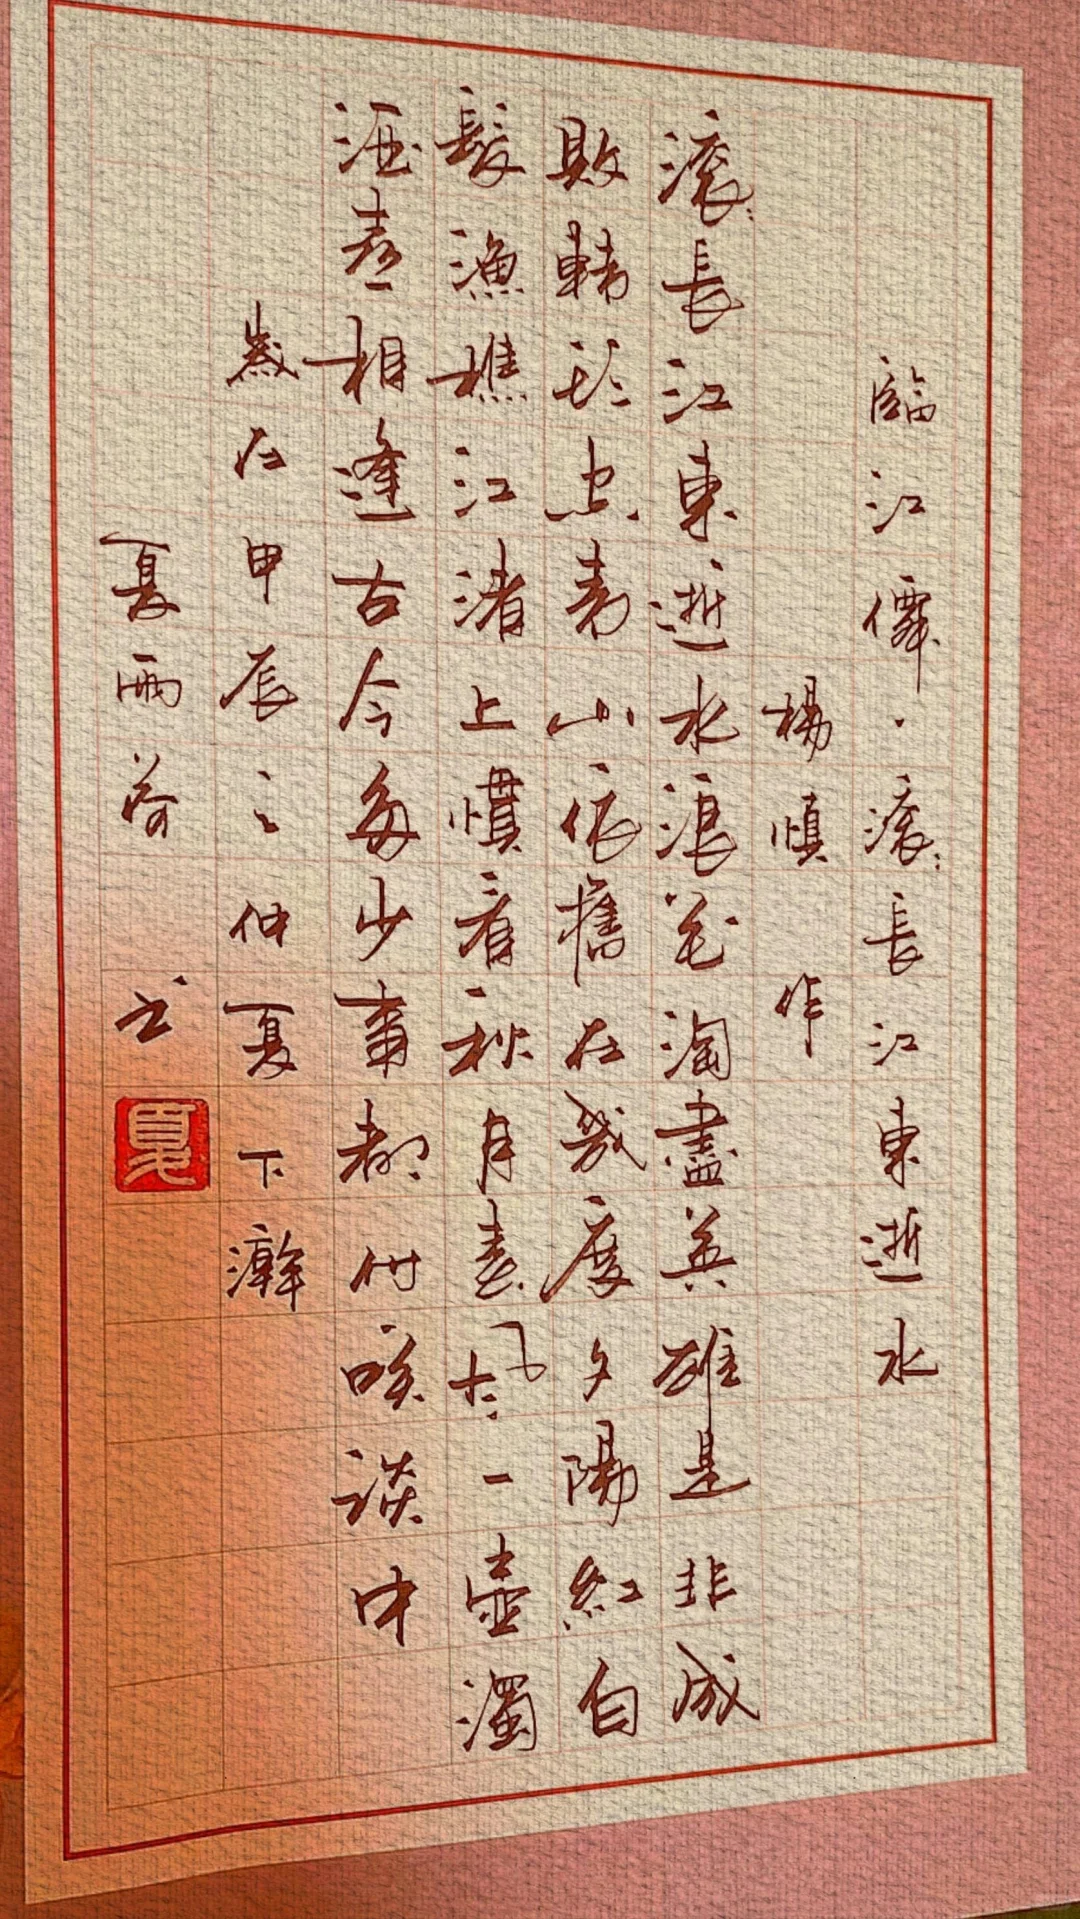 臨江僊·滾〻長江東逝水
楊慎 作
滾〻長江東逝水浪花淘盡英雄是非成
敗轉頭空青山依舊在幾度夕陽紅白
髮漁樵江渚上慣看秋月春風一壺濁
酒喜相逢古今多少事都付咲談中
歲在甲辰之仲夏下澣
夏雨荷 书
夏